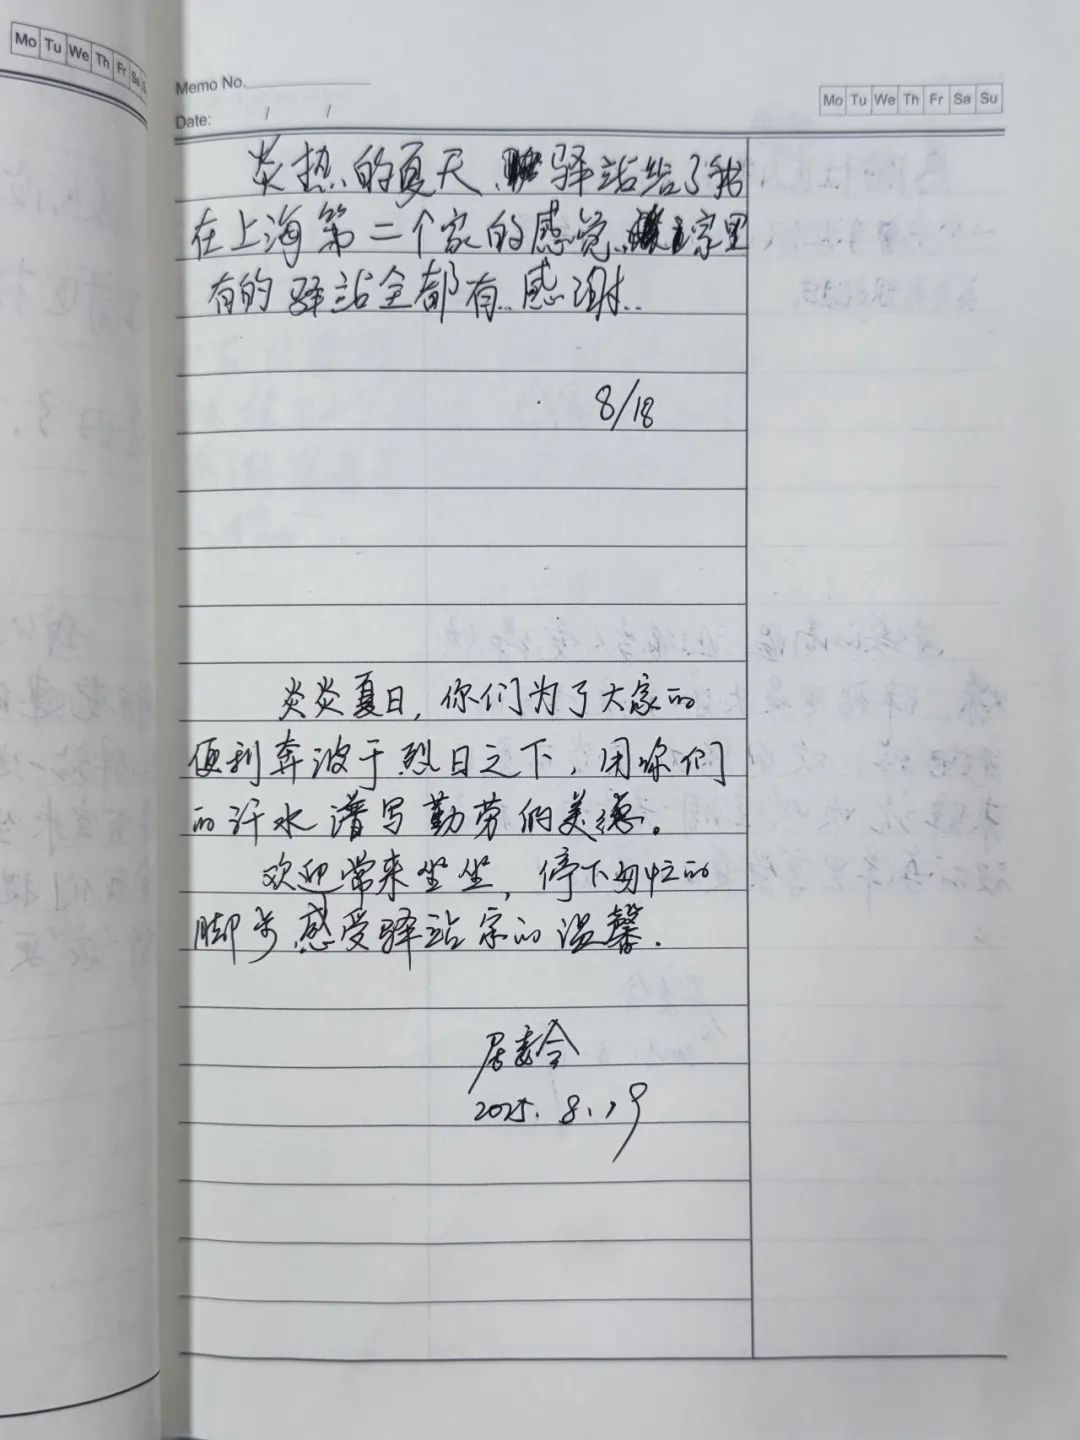 Mo Tu We Th Fr Sa
Memo No.
Date: / /
Mo Tu We Th Fr Sa Su
炎热的夏天、驿站给了我
在上海第二个家的感觉、家里
有的驿站全都有..感谢..
8/18
炎炎夏日，你们为了大家的
便利奔波于烈日之下，用你们
的汗水谱写勤劳的美德。
欢迎常来坐坐，停下匆忙的
脚步、感受驿站家的温馨.
居委会
2025.8.19